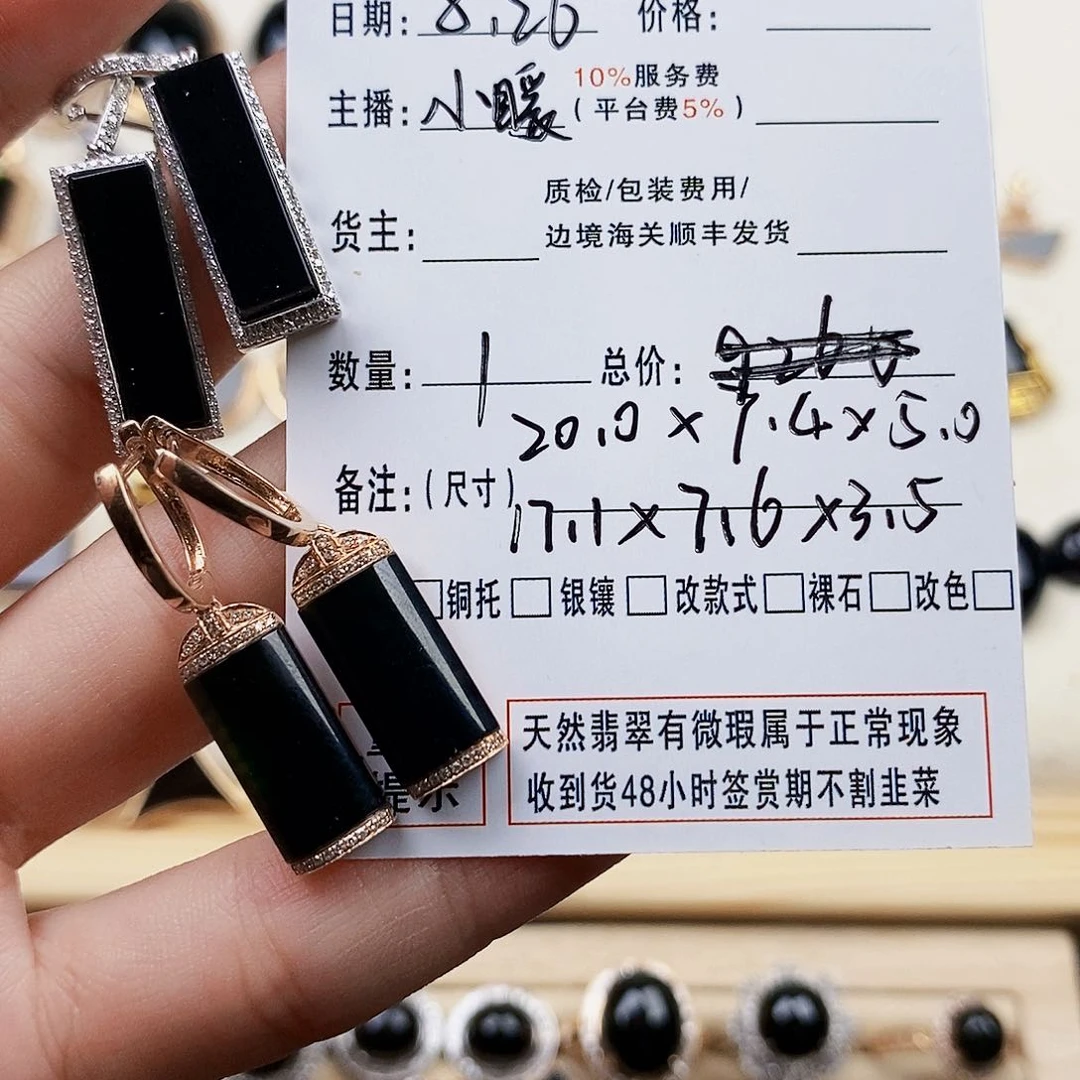 日期: 8.26 价格:
主播: 小暖 10%服务费
(平台费5%)
货主: 质检/包装费用/
边境海关顺丰发货
数量: 1 总价:
20.0 x 7.4 x 5.0
备注:(尺寸) 17.1 x 7.6 x 3.5
铜托 银镶 改款式 裸石 改色
天然翡翠有微瑕属于正常现象
提示 收到货48小时签赏期不割韭菜